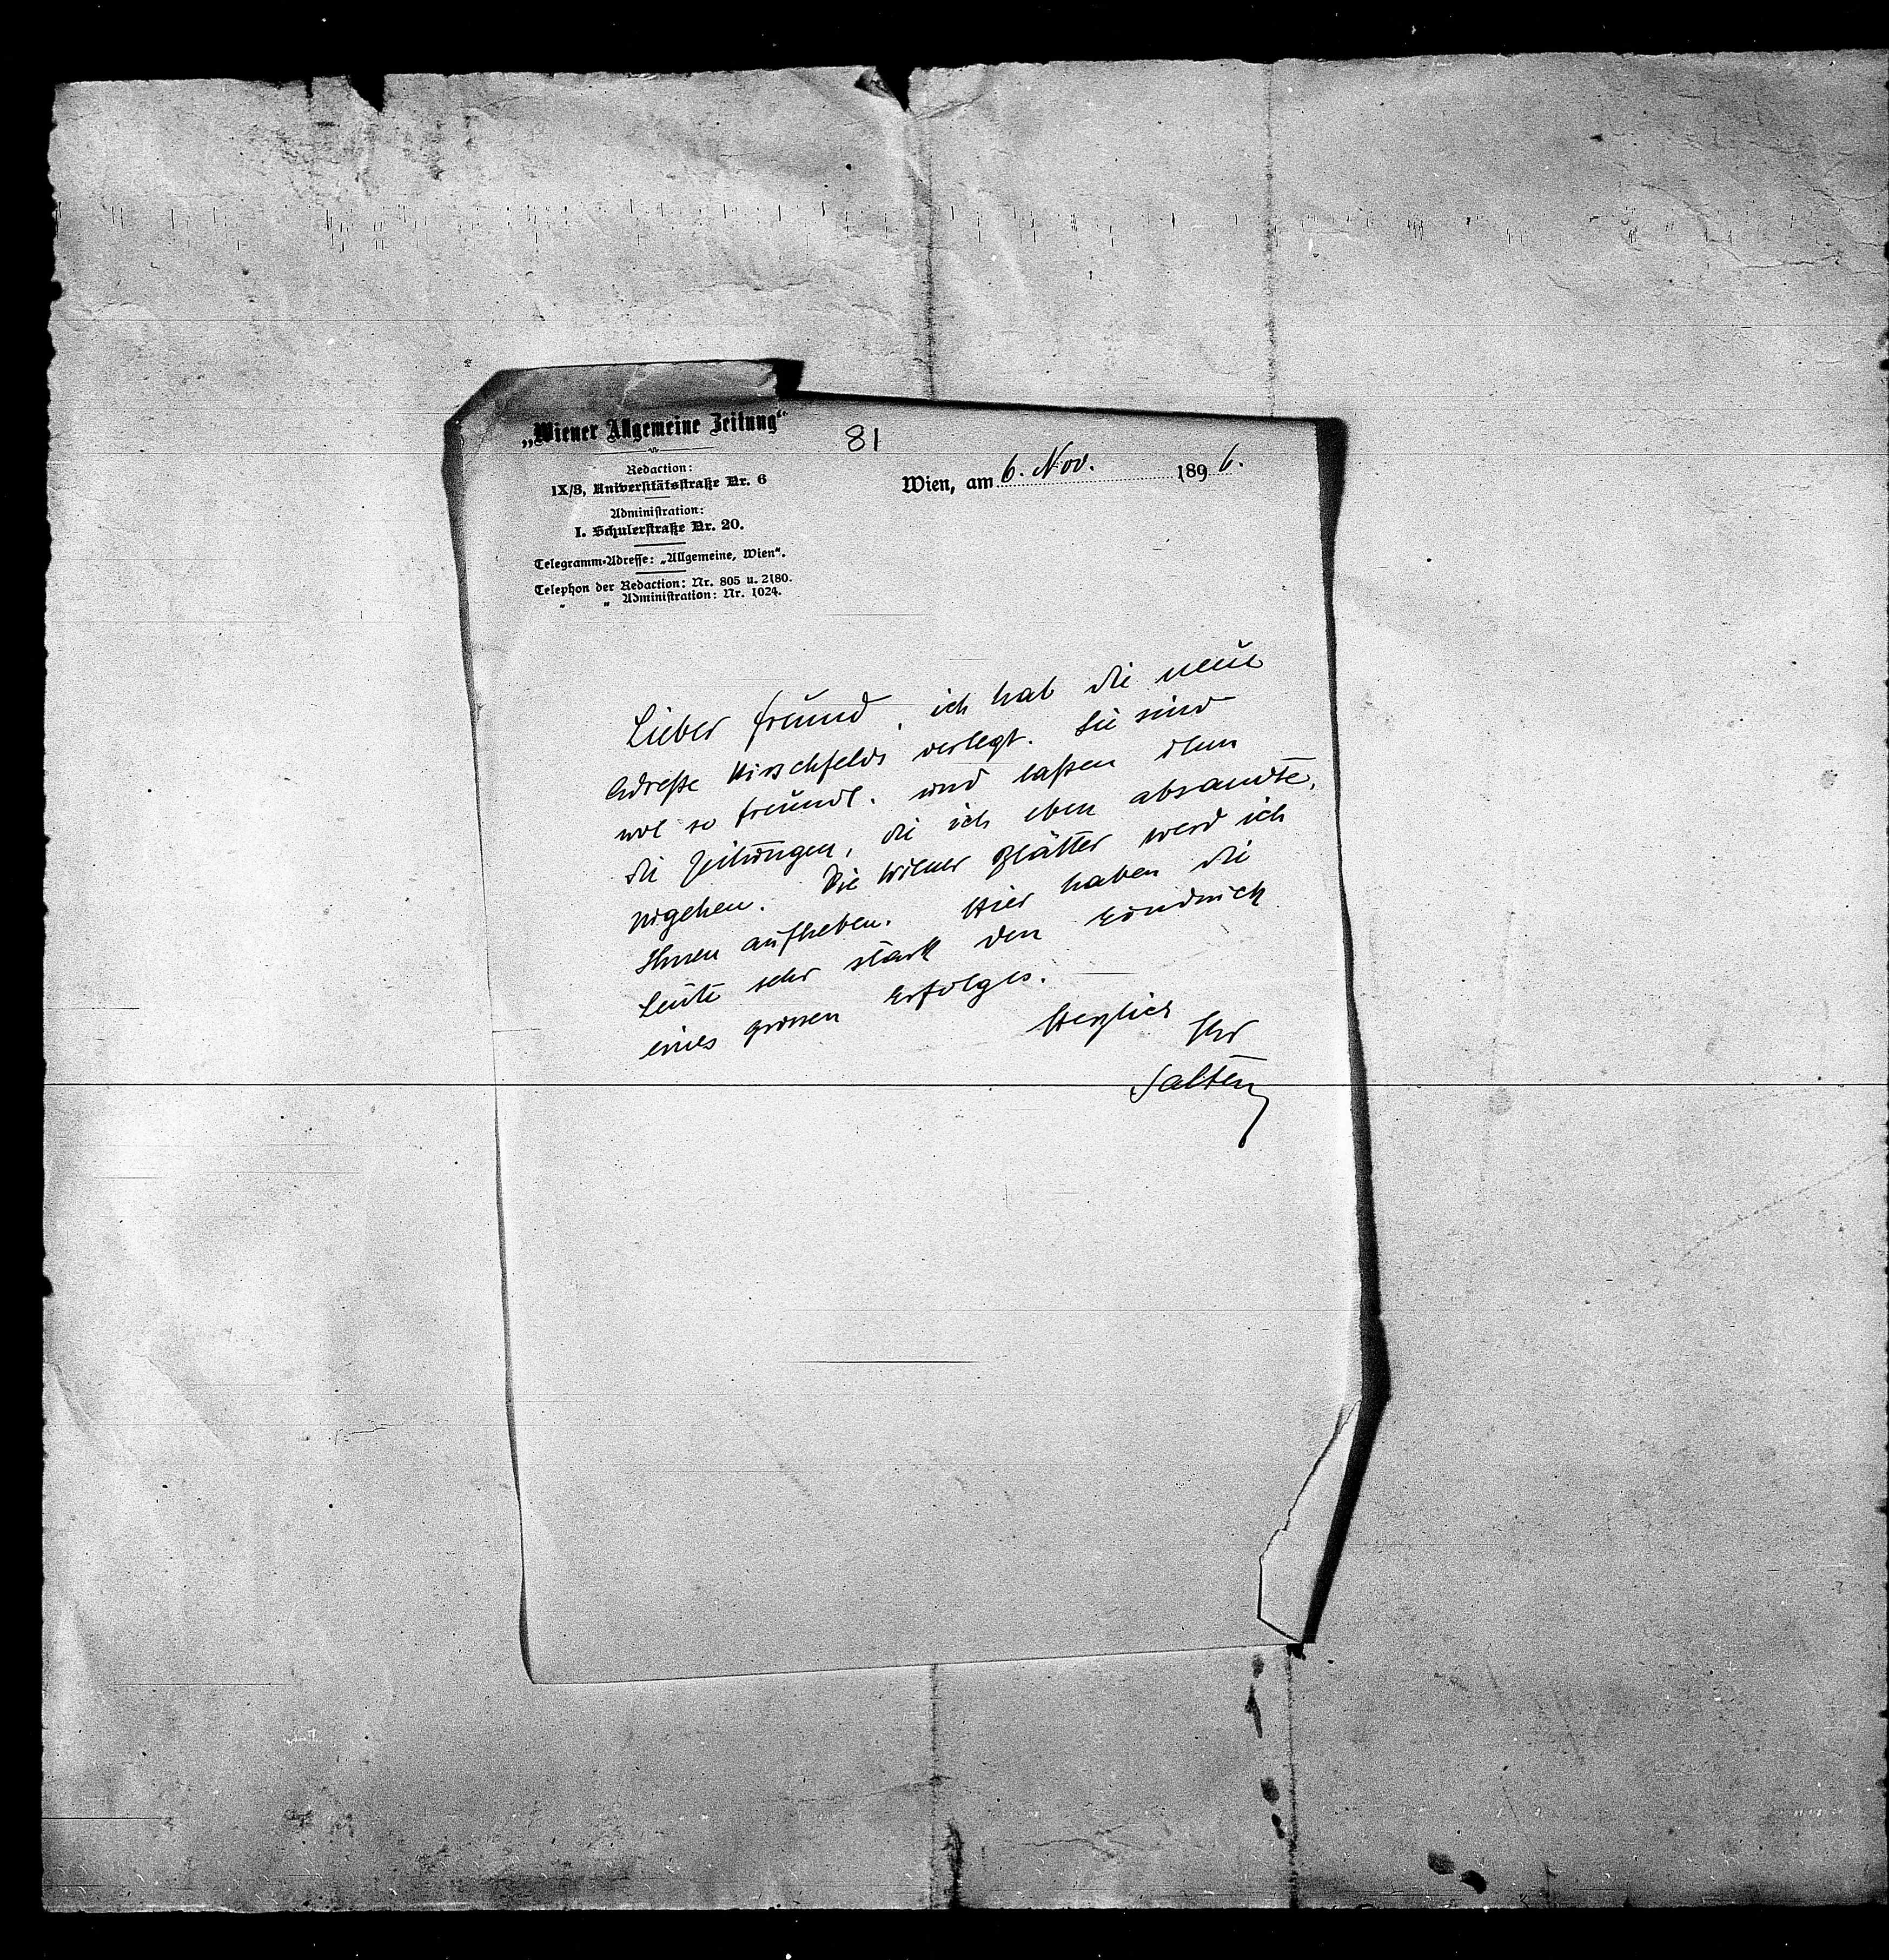 „Wiener Allgemeine Zeitung“
81
Redaction:
IX/3, Universitätsstraße Nr. 6
Administration:
I. Schulerstraße Nr. 20.
Telegramm-Adresse: „Allgemeine, Wien“.
Telephon der Redaction: Nr. 805 u. 2180.
„ „ Administration: Nr. 1024.
Wien, am 6. Nov. 1896.
Lieber Freund, ich hab die neue
Adreße Hirschfelds verlegt. Sie sind
wol so freundl. und laßen ihm
die Zeitungen, die ich eben absandte,
zugehen. Die Wiener Blätter werd ich
Ihnen aufheben. Hier haben die
Leute sehr stark den Eindruck
eines grossen Erfolges.
Herzlich
Ihr
Salten